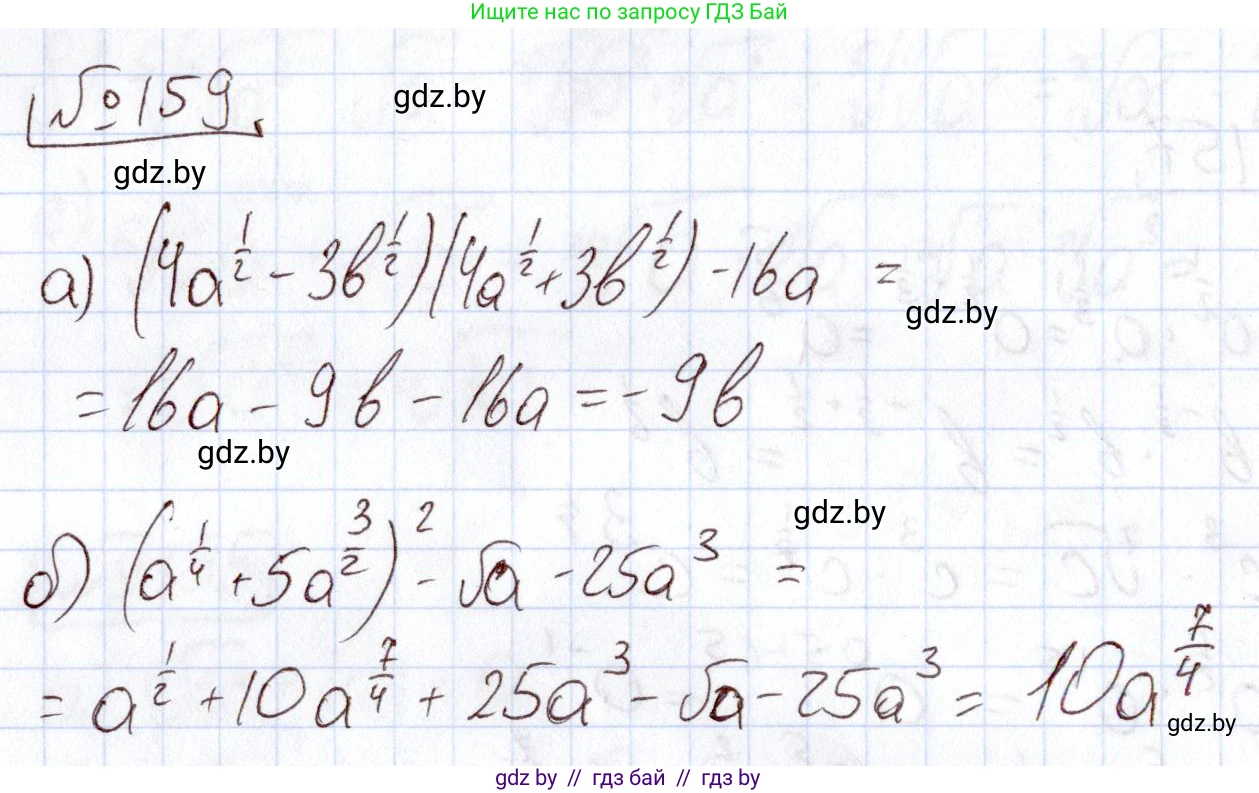 Ищите нас по запросу ГДЗ Бай
№159
gdz.by
gdz.by
а) (4a^{1/2} - 3b^{1/2})(4a^{1/2} + 3b^{1/2}) - 16a =
gdz.by
= 16a - 9b - 16a = -9b
gdz.by
gdz.by
б) (a^{1/4} + 5a^{3/2})^2 - √a - 25a^3 =
= a^{1/2} + 10a^{7/4} + 25a^3 - √a - 25a^3 = 10a^{7/4}
gdz.by
gdz by // гдз бай // гдз by